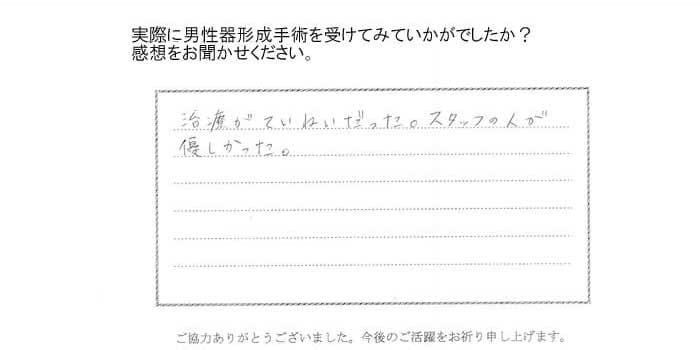 実際に男性器形成手術を受けてみていかがでしたか？
感想をお聞かせください。
治療がていねいだった。スタッフの人が
優しかった。
ご協力ありがとうございました。今後のご活躍をお祈り申し上げます。